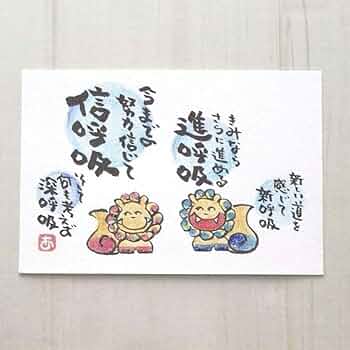 きみなら
さらに進める
進呼吸
新しい道を
感じて
新呼吸
今までの
努力信じて
信呼吸
そして
何も考えず
深呼吸
あ